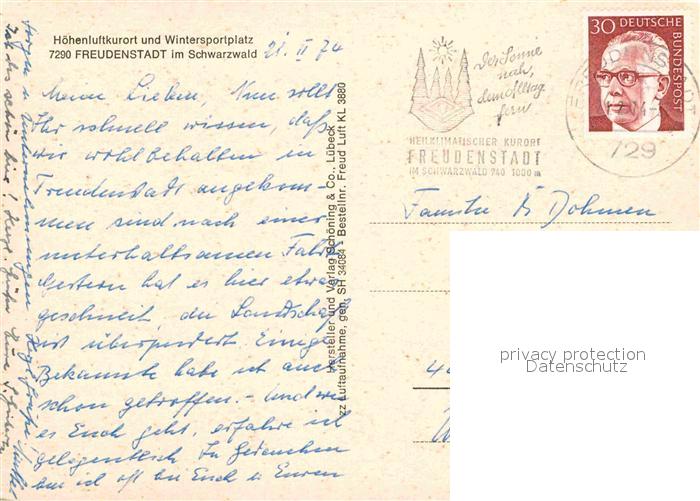 Höhenluftkurort und Wintersportplatz
7290 FREUDENSTADT im Schwarzwald
21. II 74
Meine Lieben, Nun sollt
Ihr schnell wissen, daß
wir wohlbehalten in
Freudenstadt angekom-
men sind nach einer
unterhaltsamen Fahrt.
Gestern hat es hier etwas
geschneit, die Landschaft
ist überpudert. Einige
Bekannte habe ich auch
schon getroffen. - Und wie
es Euch geht, erfahre ich
gelegentlich. In Gedanken
bin ich oft bei Euch u Euren
Hersteller und Verlag Schöning & Co., Lübeck
Luftaufnahme, gen. SH 34084 Bestellnr. Freud Luft KL 3880
Der Sonne
nah,
dem Alltag
fern
HEILKLIMATISCHER KURORT
FREUDENSTADT
IM SCHWARZWALD 740-1000 m
30 DEUTSCHE
BUNDESPOST
FREUDENSTADT
729
Familie Dohmen
privacy protection
Datenschutz